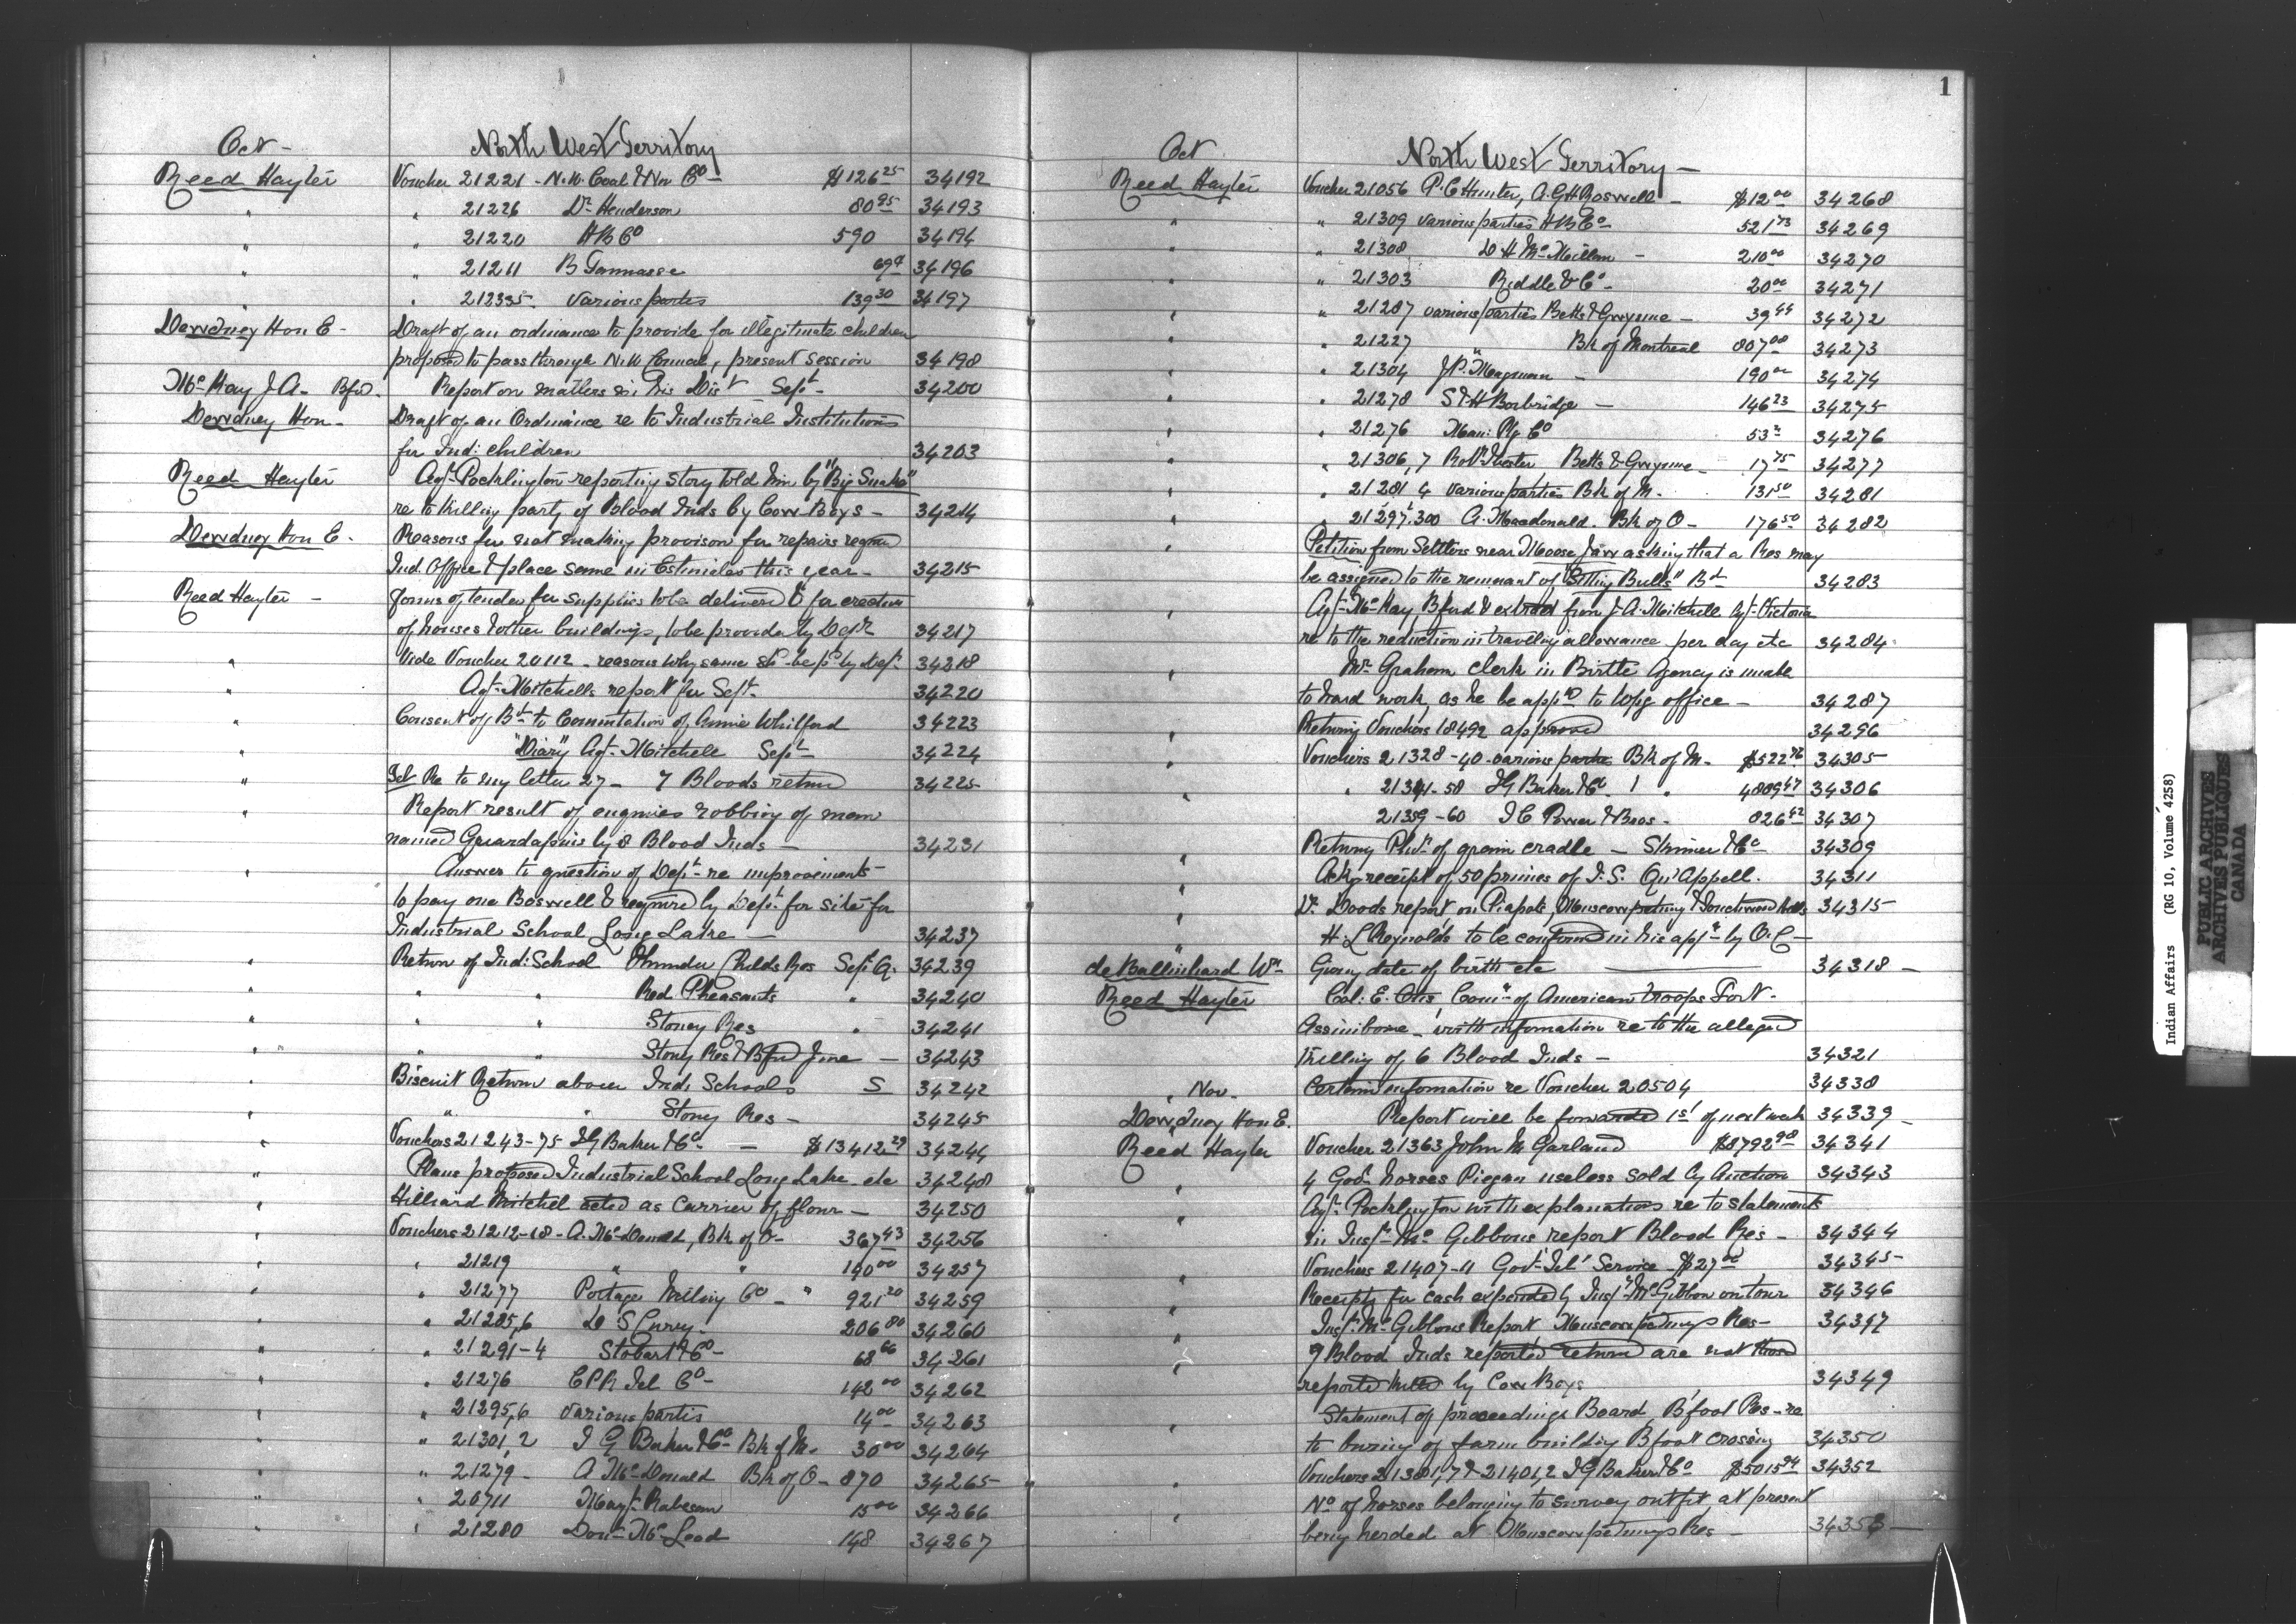 Oct - North West Territory
Reed Hayter Voucher 21221 - N.W. Coal & Nav Co - $126 25 34192
" " 21226 Dr Henderson 80 95 34193
" " 21220 H B Co 590 34194
" " 21211 B 69 34196
" " 212335 Various parties 139 30 34197
Dewdney Hon E - Draft of an ordinance to provide for illegitimate children
proposed to pass through N.W Council, present session 34198
McKay J. A. Bfd. Report on matters in his Dist Sept - 34200
Dewdney Hon - Draft of an Ordinance re to Industrial Institutions
for Ind: children 34203
Reed Hayter Agt Pocklington reporting story told him by "Big Snake"
re to killing party of Blood Inds by Cow Boys - 34214
Dewdney Hon E - Reasons for not making provision for repairs
Ind. Office & place same in Estimates this year - 34215
Reed Hayter - forms of tender for supplies to be delivered & for erection
of houses & other buildings, to be provided by Dept 34217
" Vide Voucher 20112 - reasons why same shd be pd by Dept 34218
" Agt Mitchells report for Sept - 34220
" Consent of Bd to Commutation of Annie Whitford 34223
" "Diary" Agt Mitchell Sept - 34224
" Tel Re to my letter 27 - 7 Bloods return 34225
" Report result of enquiries robbing of man
named Guardapius by 8 Blood Inds - 34231
" Answer to question of Dept - re improvements
to pay one Boswell & required by Dept for site for
Industrial School Long Lake - 34237
" Return of Ind: School Thunder Childs Res Sept Q. 34239
" " " Red Pheasants " 34240
" " " Stoney Res " 34241
" " " Stony Res & Bfd June - 34243
" Biscuit Return above Ind: Schools S 34242
" " " Stony Res - 34245
" Vouchers 21243-75 I G Baker & Co - $13412 29 34244
" Plans proposed Industrial School Long Lake etc 34248
" Hilliard Mitchel acted as carrier of flour - 34250
" Vouchers 21212-18 - A. McDonald, Bk of O - 367 43 34256
" " 21219 " " 140 00 34257
" " 21277 Portage Milling Co - " 921 20 34259
" " 21285,6 D S Curry - 206 80 34260
" " 21291-4 Stobart & Co - 68 66 34261
" " 21276 C P R Tel Co - 142 00 34262
" " 21295,6 Various parties 14 00 34263
" " 21301,2 I G Baker & Co - Bk of M - 30 00 34264
" " 21279 - A McDonald Bk of O - 870 34265
" " 20711 15 00 34266
" " 21280 Don McLeod 148 34267
1
Oct North West Territory -
Reed Hayter Voucher 21056 P. C Hunter, A. G H Boswell - $12 00 34268
" " 21309 various parties H B Co - 521 73 34269
" " 21308 D H McMillan - 210 00 34270
" " 21303 Riddle & Co - 20 00 34271
" " 21287 various parties Betts & Gwynne - 39 44 34272
" " 21227 " Bk of Montreal 807 08 34273
" " 21304 J P. Magnum - 190 00 34274
" " 21278 S & H Borbridge - 146 23 34275
" " 21276 Man: Ptg Co 53 34276
" " 21306,7 Robt Betts & Gwynne - 17 75 34277
" " 21281 4 various parties Bk of M. 131 50 34281
" " 21297 & 300 A. Macdonald. Bk of O - 176 50 34282
" Petition from Settlers near Moose Jaw asking that a Res may
be assigned to the remnant of "Sitting Bulls" Bd 34283
" Agt McKay, Bfd & extract from J. A. Mitchell Agt Victoria
re to the reduction in traveling allowance per day etc 34284
" Mr Graham clerk in Birtle Agency is unable
to hard work, as he be appd to Wpg office - 34287
" Returng Vouchers 18492 approved 34296
" Vouchers 21328-40 - various parties Bk of M - $522 76 34305
" " 21341-58 I G Baker & Co " 4809 47 34306
21359-60 I C Power & Bros - 826 42 34307
" Returng Phn of grain cradle - Skinner & Co - 34309
" Ackg receipt of 50 primers of I. S. Qu'Appell. 34311
" Dr Dodds report on Piapots, Muscowpetung & 34315
" H. L Reynolds to be confirmed in his appt by O. C -
de Ballinhard Wm Giving date of birth etc 34318 -
Reed Hayter Col: E. Otis Comr of American troops Fort
Assiniboine - with information re to the alleged
killing of 6 Blood Inds - 34321
" Nov - Certain information re Voucher 20504 34338
Dewdney Hon E. Report will be forwarded 1st of next week 34339
Reed Hayter Voucher 21363 John M Garland $8792 98 34341
" 4 Govt horses Piegan useless sold by Auction 34343
" Agt Pocklington with explanations re to statements
in Inspr McGibbons report Blood Res - 34344
" Vouchers 21407-11 Govt Tel Service - $27 00 34345
" Receipts for cash expended by Inspr McGibbon on tour 34346
" Inspr McGibbons Report Muscowpetungs Res - 34347
" 7 Blood Inds reported return are not those
reported killed by Cow Boys 34349
" Statement of proceedings Board, B'foot Res - re
to buring of farm building Bfoot crossing 34350
" Vouchers 21381,7 & 21401,2 I G Baker & Co $5015 94 34352
" No of horses belonging to survey outfit, at present
being herded at Muscowpetungs Res - 34353
Indian Affairs (RG 10, Volume 4258)
PUBLIC ARCHIVES
ARCHIVES PUBLIQUES
CANADA